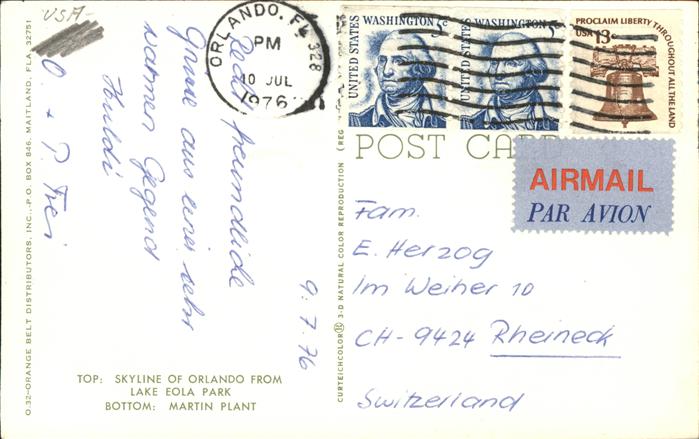 USA-
Recht freundliche
Grüsse aus einer sehr
warmen Gegend
Huldi
O + P. Frei
9.7.76
ORLANDO, FL 328
PM
10 JUL
1976
UNITED STATES
WASHINGTON 5c
UNITED STATES
WASHINGTON 5c
PROCLAIM LIBERTY THROUGHOUT ALL THE LAND
USA 13c
POST CARD
AIRMAIL
PAR AVION
Fam.
E. Herzog
Im Weiher 10
CH-9424 Rheineck
Switzerland
TOP: SKYLINE OF ORLANDO FROM
LAKE EOLA PARK
BOTTOM: MARTIN PLANT
O.32-ORANGE BELT DISTRIBUTORS, INC.-P.O. BOX 846, MAITLAND, FLA. 32751
CURTEICHCOLOR® 3-D NATURAL COLOR REPRODUCTION (REG